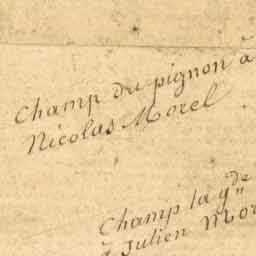 Champ du pignon à
Nicolas Morel
Champ la gde
à Julien Mor